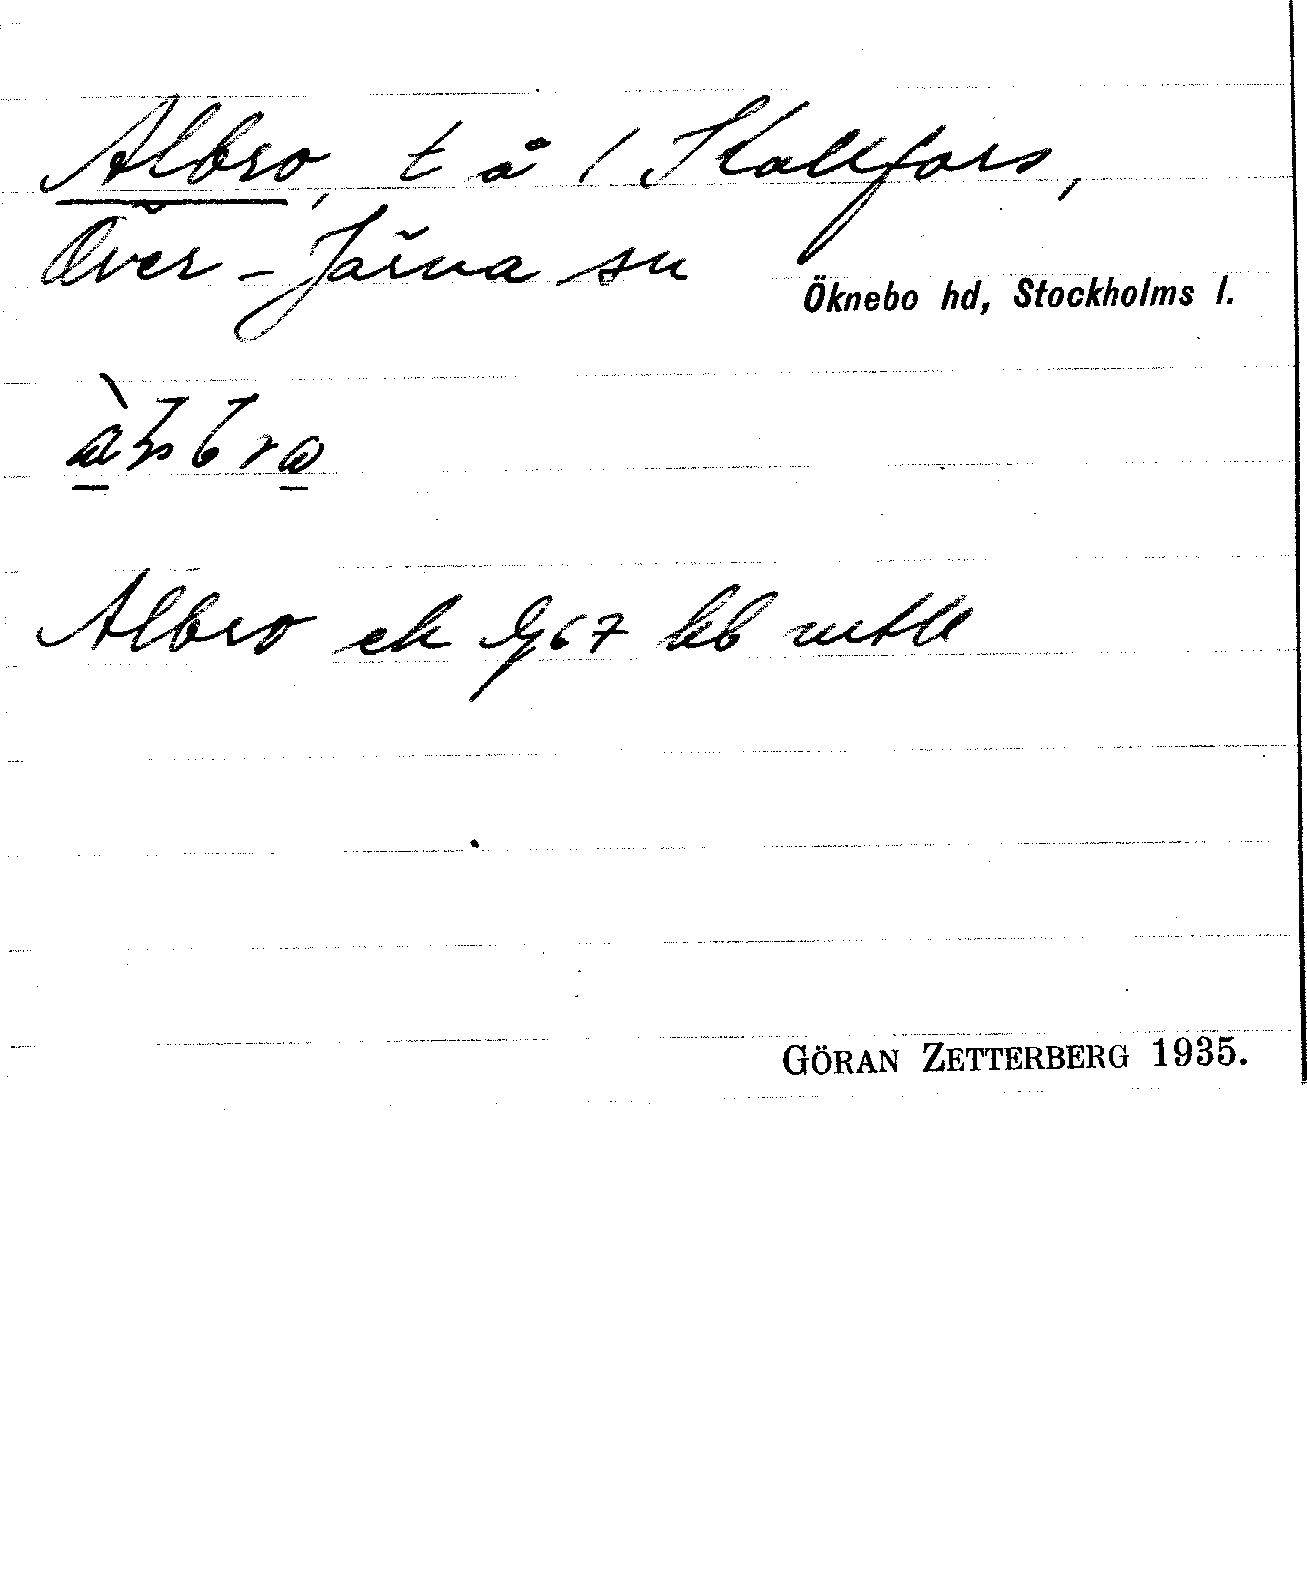 Albro, t å / Skällfors,
Över-Järna sn
Öknebo hd, Stockholms l.
Albro ek 67 kb mtl
GÖRAN ZETTERBERG 1935.